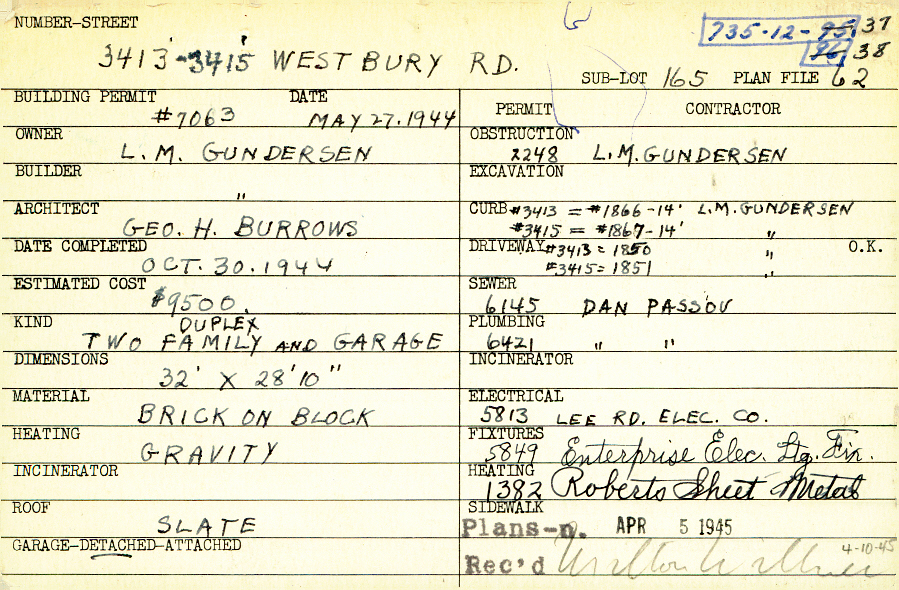 NUMBER-STREET
735-12-95, 37
96 38
3413-3415 WESTBURY RD.
SUB-LOT 165 PLAN FILE 62
BUILDING PERMIT DATE
#7063 MAY 27.1944
OWNER
L.M. GUNDERSEN
BUILDER
"
ARCHITECT
GEO. H. BURROWS
DATE COMPLETED
OCT. 30.1944
ESTIMATED COST
$9500.
KIND
DUPLEX
TWO FAMILY AND GARAGE
DIMENSIONS
32' X 28'10"
MATERIAL
BRICK ON BLOCK
HEATING
GRAVITY
INCINERATOR
ROOF
SLATE
GARAGE-DETACHED-ATTACHED
PERMIT CONTRACTOR
OBSTRUCTION
2248 L.M. GUNDERSEN
EXCAVATION
CURB #3413 = #1866-14' L.M. GUNDERSEN
#3415 = #1867-14' "
DRIVEWAY #3413 = 1850 " O.K.
#3415 = 1851 "
SEWER
6145 DAN PASSOV
PLUMBING
6421 " "
INCINERATOR
ELECTRICAL
5813 LEE RD. ELEC. CO.
FIXTURES
5849 Enterprise Elec. Ltg. Fix.
HEATING
1382 Roberts Sheet Metal
SIDEWALK
Plans-n. APR 5 1945
Rec'd 4-10-45